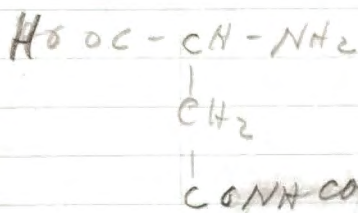 HOOC - CH - NH2
|
CH2
|
CONH CO